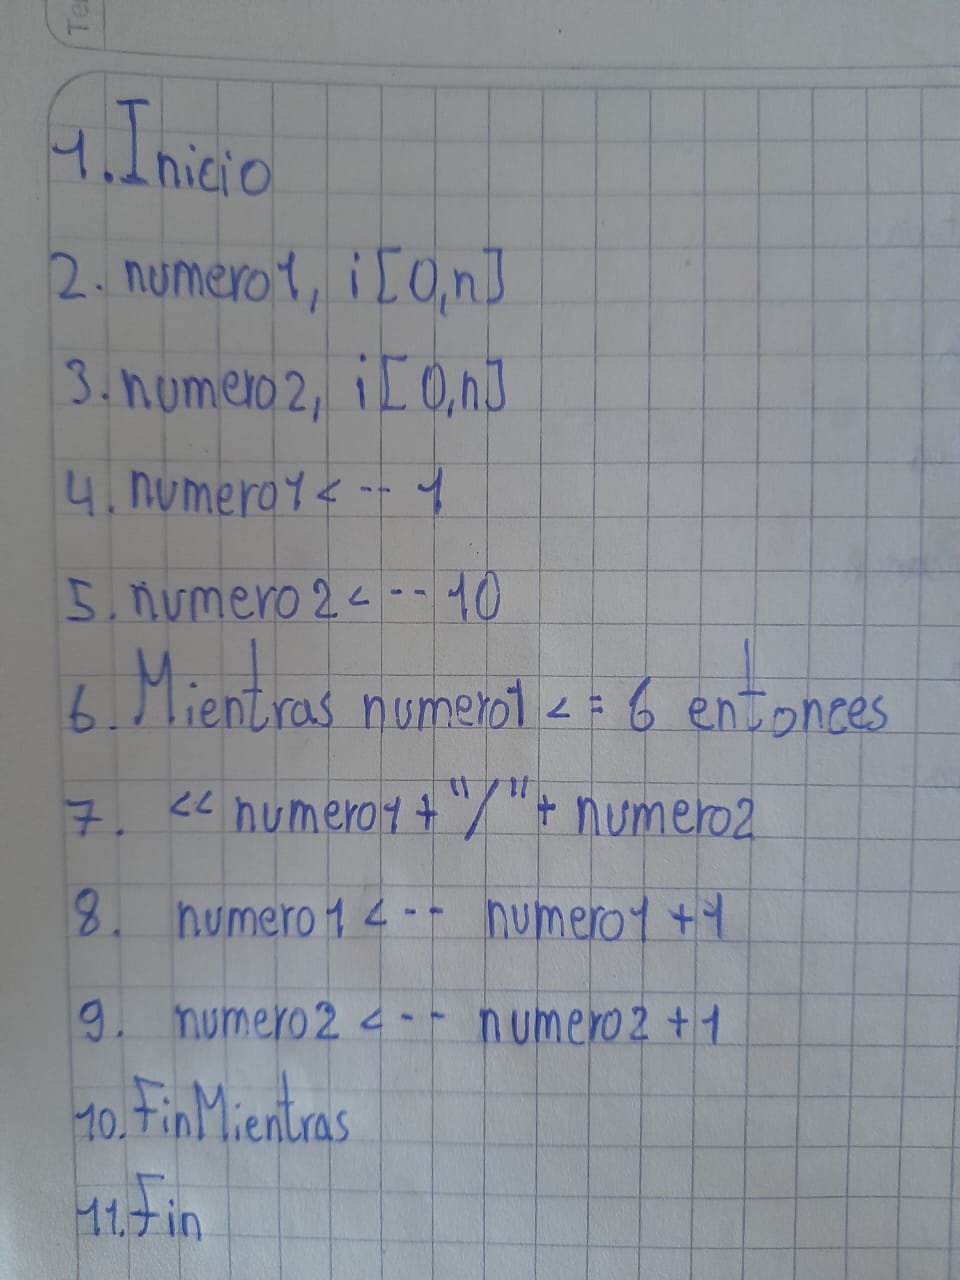 Te
1. Inicio
2. numero1, i[0,n]
3. numero2, i[0,n]
4. numero1 <-- 1
5. numero2 <-- 10
6. Mientras numero1 <= 6 entonces
7. << numero1 + "/" + numero2
8. numero1 <-- numero1 + 1
9. numero2 <-- numero2 + 1
10. FinMientras
11. Fin